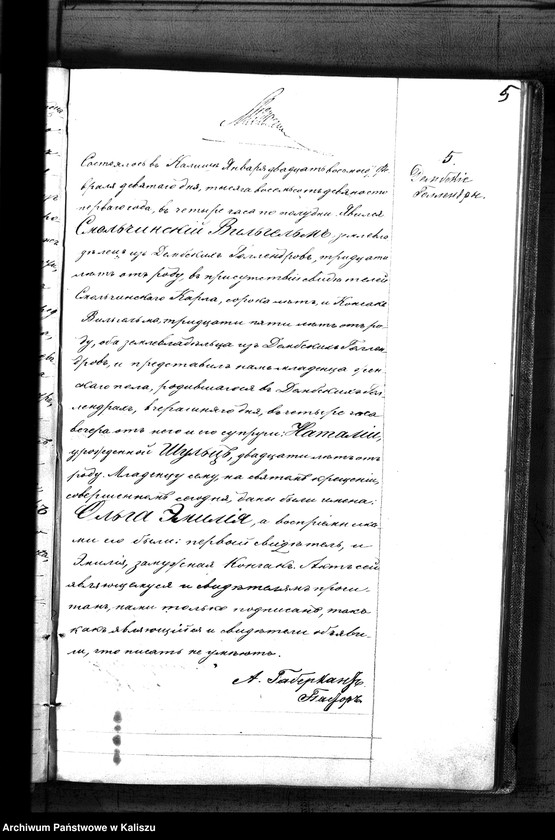 5
5.
Дембскіе
Голлендры.
Состоялось въ Калишѣ Января двадцать восьмаго /Фе
враля девятаго дня, тысяча восемьсотъ девяносто
перваго года, въ четыре часа по полудни. Явился
Смольчинскій Вильгельмъ, землевла
дѣлецъ изъ Дембскихъ Голлендровъ, тридцати
лѣтъ отъ роду, въ присутствіи свидѣтелей
Смольчинскаго Карла, сорока лѣтъ, и
Вильгельма, тридцати пяти лѣтъ отъ ро-
ду, оба землевладѣльца изъ Дембскихъ Голлен
дровъ, и представилъ намъ младенца жен
скаго пола, родившагося въ Дембскихъ Гол
лендрахъ, вчерашняго дня, въ четыре часа
вечера отъ него и его супруги, Наталіи,
урожденной Шульцъ, двадцати лѣтъ отъ
роду. Младенцу сему на святомъ крещеніи,
совершенномъ сегодня, даны были имена:
Ольга Эмилія, а воспріемника
ми его были: первый свидѣтель, и
Эмилія, замужная Конгакъ. Актъ сей
являющемуся и свидѣтелямъ прочи
танъ, нами только подписанъ, такъ
какъ являющійся и свидѣтели объяви-
ли, что писать не умѣютъ.
А. Габеркантъ
Пасторъ.
Archiwum Państwowe w Kaliszu